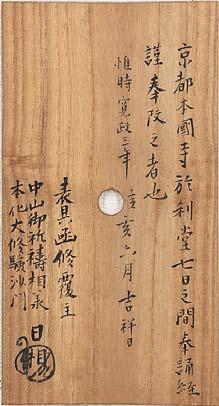 京都本國寺於利堂七日之間奉誦経
謹奉改之者也
惟時寛政三年辛亥六月吉祥日
表具函修覆主
中山御祈禱相承
本化大修驗沙門
日暘